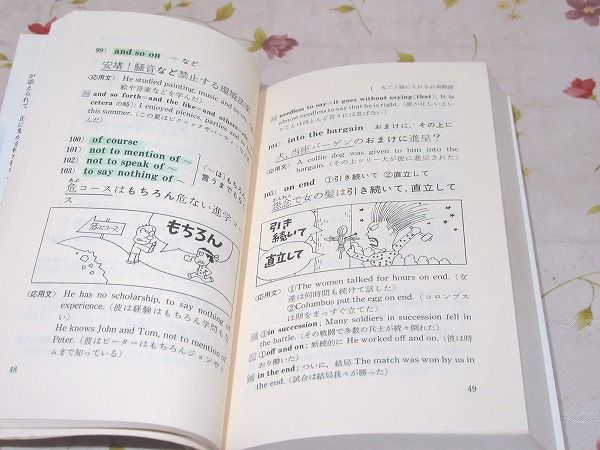 99) and so on ～など
安堵!騒音など禁止する環境
〈応用文〉 He studied painting, music and so on.
絵や音楽などを学んだ)
and so forth=and the like=and others=et
cetera の略) I enjoyed picnics, concerts
this summer. (この夏はピクニックやパーティー
100) of course
101) not to mention of ～
102) not to speak of ～
103) to say nothing of ～
(～は)もちろん
言うまでもなく
危コースはもちろん危ない進学コー
ス
危コース
もちろん
〈応用文〉 He has no scholarship, to say nothing of
experience. (彼は経験はもちろん学問もな
い)
He knows John and Tom, not to mention of
Peter. (彼はピーターはもちろんジョンやト
ムまで知っている)
48
1 丸ごと頭に入れる必須熟語
needless to say=it goes without saying(that); It is
almost needless to say that he is right. (彼が正しいとい
うことはほとんど言うには及ばない)
104) into the bargain おまけに、その上に
犬、当座バーゲンのおまけに進呈?
〈応用文〉 A collie dog was given to him into the
bargain. (その上コリー犬が彼に進呈された)
105) on end ①引き続いて ②直立して
怨念で女の髪は引き続いて、直立して
引き
続いて
直立して
〈応用文〉 ①The women talked for hours on end. (女
達は何時間も続けて話した)
②Columbus put the egg on end. (コロンブス
は卵をまっすぐ立てた)
①in succession; Many soldiers in succession fell in
the battle. (その戦闘で多数の兵士が続々倒れた)
①off and on; 断続的に He worked off and on. (彼は時
おり働いた)
in the end; ついに, 結局 The match was won by us in
the end. (試合は結局我々が勝った)
49